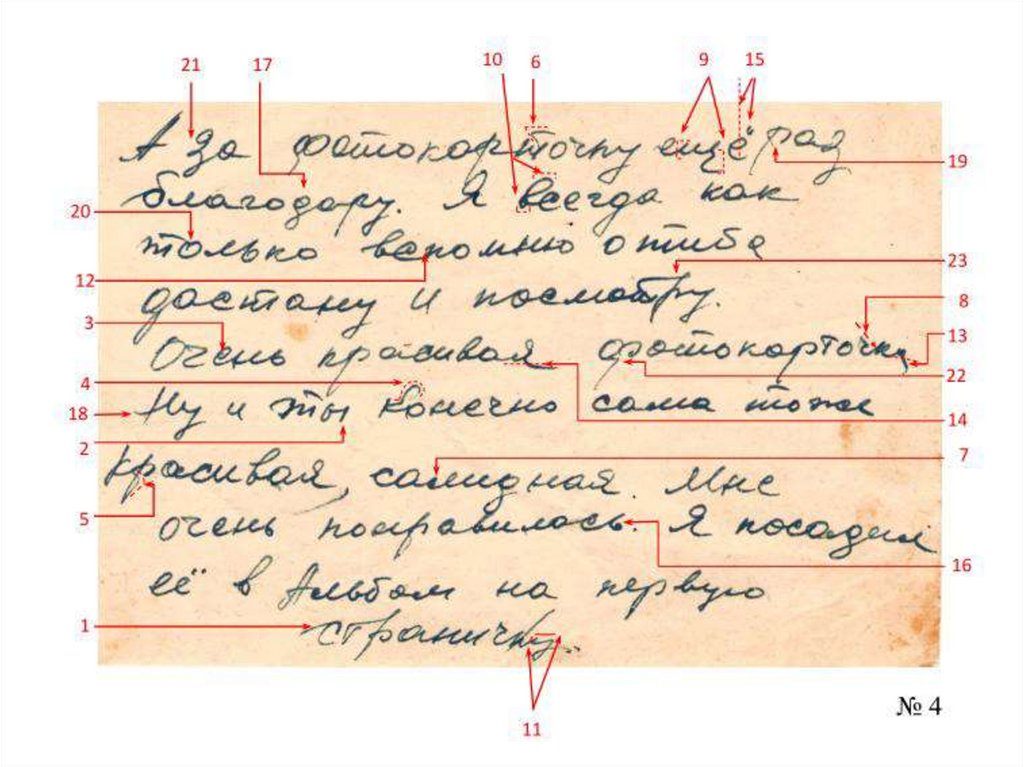 21 17 10 6 9 15
А за фотокарточку ещё раз
19
благодару. Я всегда как
20
только вспомню о тибе
23
12
достану и посмотру.
8
3
13
Очень красивая фотокарточка
22
4
18 Ну и ты конечно сама тоже
14
2
красивая, самидная. Мне
7
5
очень понравилось. Я посадил
16
её в Альбом на первую
1
страничку..
11
№ 4